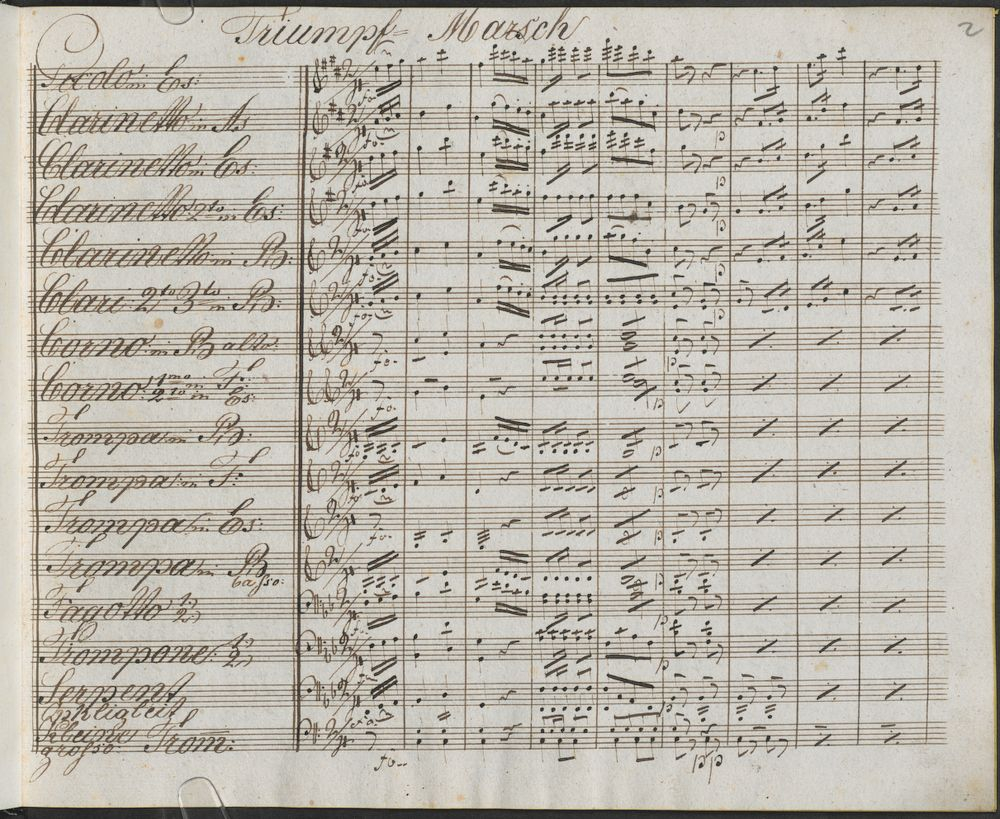 Triumpf= Marsch
2
Picolo in Es:
Clarinetto in As
Clarinetto in Es:
Clarinetto 2to in Es:
Clarinetto in B:
Clari 2do 3tio in B:
Corno in B alto
Corno 1mo in F:
2do in Es:
Trompa in B:
Trompa in F:
Trompa in Es:
Trompa in B
basso:
Fagotto 1 2
Trompone 1 2
Serpent
Kleine
grosse Trom: